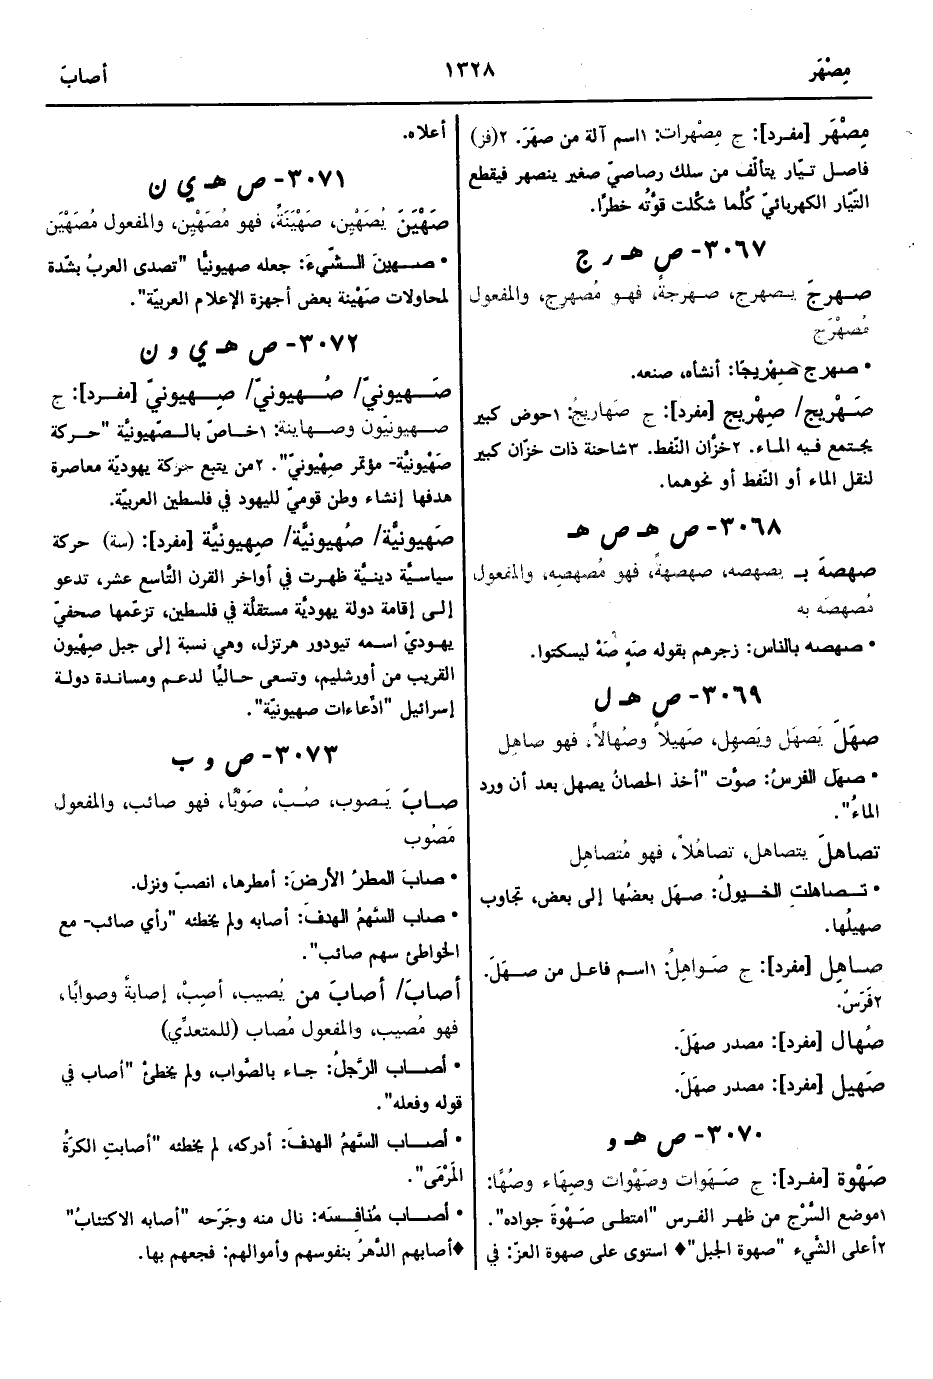 مِصْهَر
١٣٢٨
أصابَ
مِصْهَر [مفرد]: ج مِصْهرات: ١اسم آلة من صهَرَ. ٢(فز)
فاصل تيّار يتألّف من سلك رصاصيّ صغير ينصهر فيقطع
التّيّار الكهربائيّ كُلَّما شكّلت قوّتُه خطرًا.
٣٠٦٧- ص هـ ر ج
صهرجَ يصهرج، صهرجةً، فهو مُصهرِج، والمفعول
مُصهْرَج
• صهرج صِهْريجًا: أنشأه، صنعه.
صَهْريج/ صِهْريج [مفرد]: ج صَهاريجُ: ١حوض كبير
يجتمع فيه الماء. ٢خزّان النّفط. ٣شاحنة ذات خزّان كبير
لنقل الماء أو النّفط أو نحوهما.
٣٠٦٨- ص هـ ص هـ
صهصهَ بـ يصهصه، صهصهةً، فهو مُصهصِه، والمفعول
مُصهصَه به
• صهصه بالناس: زجرهم بقوله صَهٍ صَهْ ليسكتوا.
٣٠٦٩- ص هـ ل
صهَلَ يَصهَل ويَصهِل، صَهيلاً وصُهالاً، فهو صاهِل
• صهَل الفرسُ: صوَّت "أخذ الحصانُ يصهل بعد أن ورد
الماءَ".
تصاهلَ يتصاهل، تصاهُلاً، فهو مُتصاهِل
• تصاهلت الخيولُ: صهَل بعضُها إلى بعض، تجاوب
صهيلُها.
صاهِل [مفرد]: ج صَواهِلُ: ١اسم فاعل من صهَلَ.
٢فَرَسٌ.
صُهال [مفرد]: مصدر صهَلَ.
صَهيل [مفرد]: مصدر صهَلَ.
٣٠٧٠- ص هـ و
صَهْوة [مفرد]: ج صَهَوات وصَهْوات وصِهَاء وصُهًا:
١موضع السَّرْج من ظهر الفرس "امتطى صَهْوةَ جواده".
٢أعلى الشَّيء "صهوة الجبل" ♦ استوى على صهوة العزّ: في
أعلاه.
٣٠٧١- ص هـ ي ن
صَهْيَنَ يُصَهْيِن، صَهْيَنَةً، فهو مُصَهْيِن، والمفعول مُصَهْيَن
• صهينَ الشّيءَ: جعله صهيونيًّا "تصدى العربُ بشدّة
لمحاولات صَهْينة بعض أجهزة الإعلام العربيّة".
٣٠٧٢- ص هـ ي و ن
صَهيونيّ/ صُهيونيّ/ صِهيونيّ [مفرد]: ج
صهيونيّون وصهاينة: ١خاصّ بالصّهيونيَّة "حركة
صَهْيونيَّة- مؤتمر صِهْيونيّ". ٢من يتبع حركة يهوديّة معاصرة
هدفها إنشاء وطن قوميّ لليهود في فلسطين العربيَّة.
صَهيونيَّة/ صُهيونيَّة/ صِهيونيَّة [مفرد]: (سة) حركة
سياسيَّة دينيَّة ظهرت في أواخر القرن التَّاسع عشر، تدعو
إلى إقامة دولة يهوديَّة مستقلَّة في فلسطين، تزعّمها صحفيّ
يهوديّ اسمه تيودور هرتزل، وهي نسبة إلى جبل صِهْيون
القريب من أورشليم، وتسعى حاليًّا لدعم ومساندة دولة
إسرائيل "ادّعاءات صهيونيّة".
٣٠٧٣- ص و ب
صابَ يَصوب، صُبْ، صَوْبًا، فهو صائب، والمفعول
مَصُوب
• صابَ المطرُ الأرضَ: أمطرها، انصبّ ونزل.
• صاب السَّهمُ الهدفَ: أصابه ولم يخطئه "رأي صائب- مع
الخواطئ سهم صائب".
أصابَ/ أصابَ من يُصيب، أصِبْ، إصابةً وصوابًا،
فهو مُصيب، والمفعول مُصاب (للمتعدِّي)
• أصاب الرَّجلُ: جاء بالصَّواب، ولم يخطئ "أصاب في
قوله وفعله".
• أصاب السَّهمُ الهدفَ: أدركه، لم يخطئه "أصابتِ الكرةُ
المَرْمَى".
• أصاب مُنافِسَه: نال منه وجَرَحه "أصابه الاكتئابُ"
♦ أصابهم الدَّهرُ بنفوسهم وأموالهم: فجعهم بها.